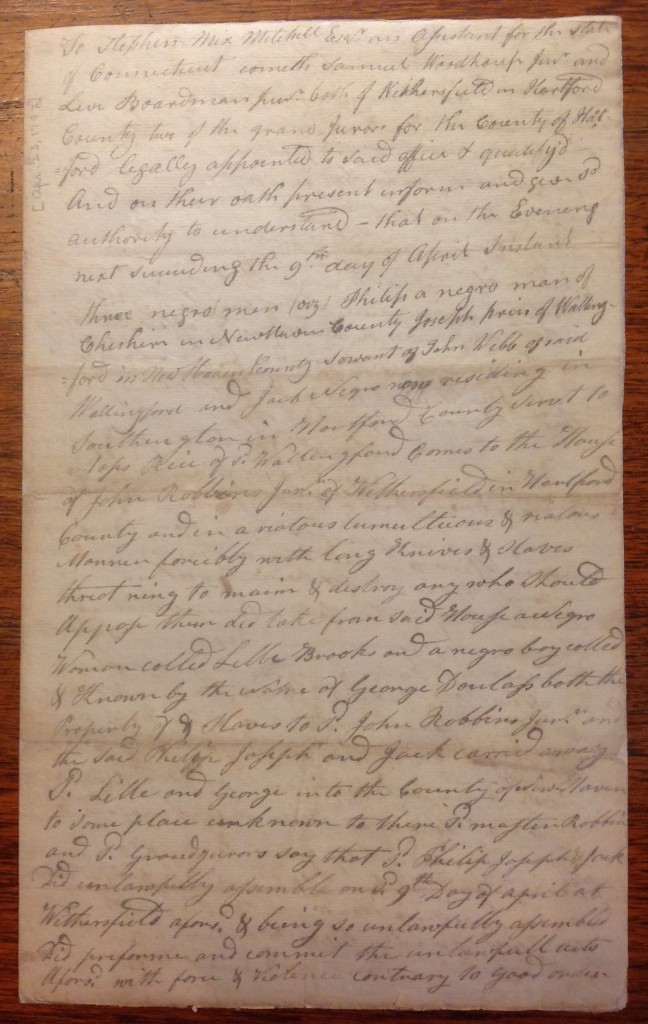 To Stephen Mix Mitchell Esqr. an Asistant for the State
of Connecticut cometh Samuel Woodhouse Junr. and
Levi Boardman Junr. both of Wethersfield in Hartford
County two of the grand Jurors for the County of Hart
=ford legally appointed to said office & qualify'd
And on their oath present inform and give sd
authority to understand - that on the Evening
next suceeding the 9th day of April Instant
[Apr. 23, 179
three negro men (viz) Philip a negro man of
Cheshire in NewHaven County Joseph prins of Walling-
=ford in New Haven County Servant of John Webb of said
Wallingford and Jack Negro now residing in
Southington in Hartford County Servt to
Rice of sd. Wallingford Comes to the House
of John Robbins Junr. of Wethersfield in Hartford
County and in a riotous tumultuous & riotous
Manner forcibly with long Knives & Staves
threatning to maim & destroy any who should
Appose them did take from said House a Negro
Woman called Lille Brooks and a negro boy called
& Known by the name of George Doulass both the
Property of & Slaves to sd. John Robbins Junr. and
the said Philip Joseph and Jack carried away
sd. Lille and George into the County of New Haven
to some place unknown to there sd. master Robbins
and sd. Grandjurors say that sd. Philip Joseph & Jack
did unlawfully assemble on sd. 9th Day of april at
Wethersfield aforsd. & being so unlawfully assembled
did preforme and commit the unlawfull acts
Aforsd. with force & Violence contrary to Good order